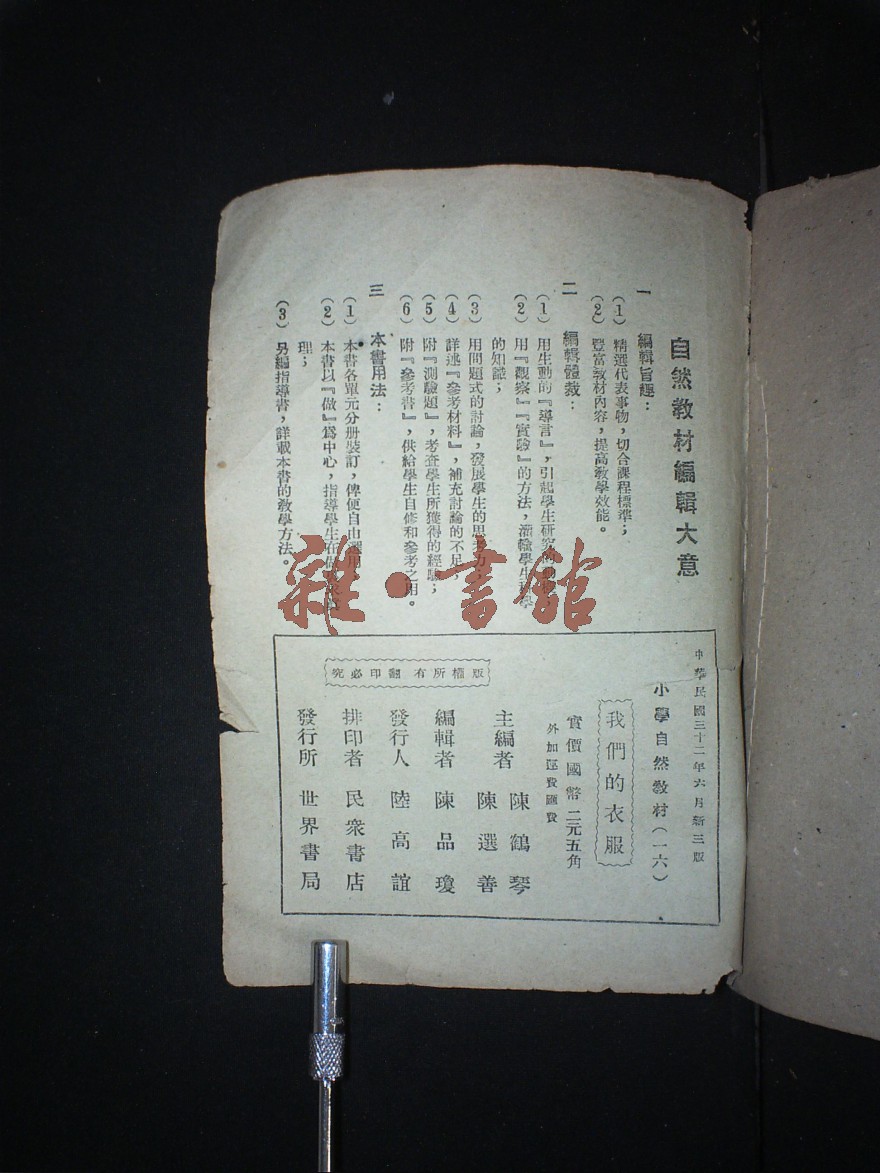 自然教材編輯大意
一 編輯旨趣：
(1) 精選代表事物，切合課程標準；
(2) 豐富教材內容，提高教學效能。
二 編輯體裁：
(1) 用生動的『導言』，引起學生研究的
(2) 用『觀察』『實驗』的方法，灌輸學生科學
的知識；
(3) 用問題式的討論，發展學生的思考力；
(4) 詳述『參考材料』，補充討論的不足；
(5) 附『測驗題』，考查學生所獲得的經驗；
(6) 附『參考書』，供給學生自修和參考之用。
三 本書用法：
(1) 本書各單元分册裝訂，俾便自由選用
(2) 本書以『做』爲中心，指導學生在做
理；
(3) 另編指導書，詳載本書的教學方法。
中華民國三十二年六月新三版
小學自然教材（一六）
我們的衣服
實價國幣二元五角
外加運費匯費
主編者 陳鶴琴
陳選善
編輯者 陳品瓊
發行人 陸高誼
排印者 民衆書店
發行所 世界書局
版權所有 翻印必究
雜·書館